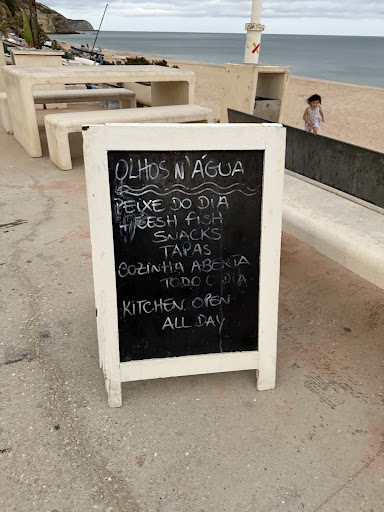 OLHOS N'ÁGUA
PEIXE DO DIA
FRESH FISH
SNACKS
TAPAS
COZINHA ABERTA
TODO O DIA
KITCHEN OPEN
ALL DAY